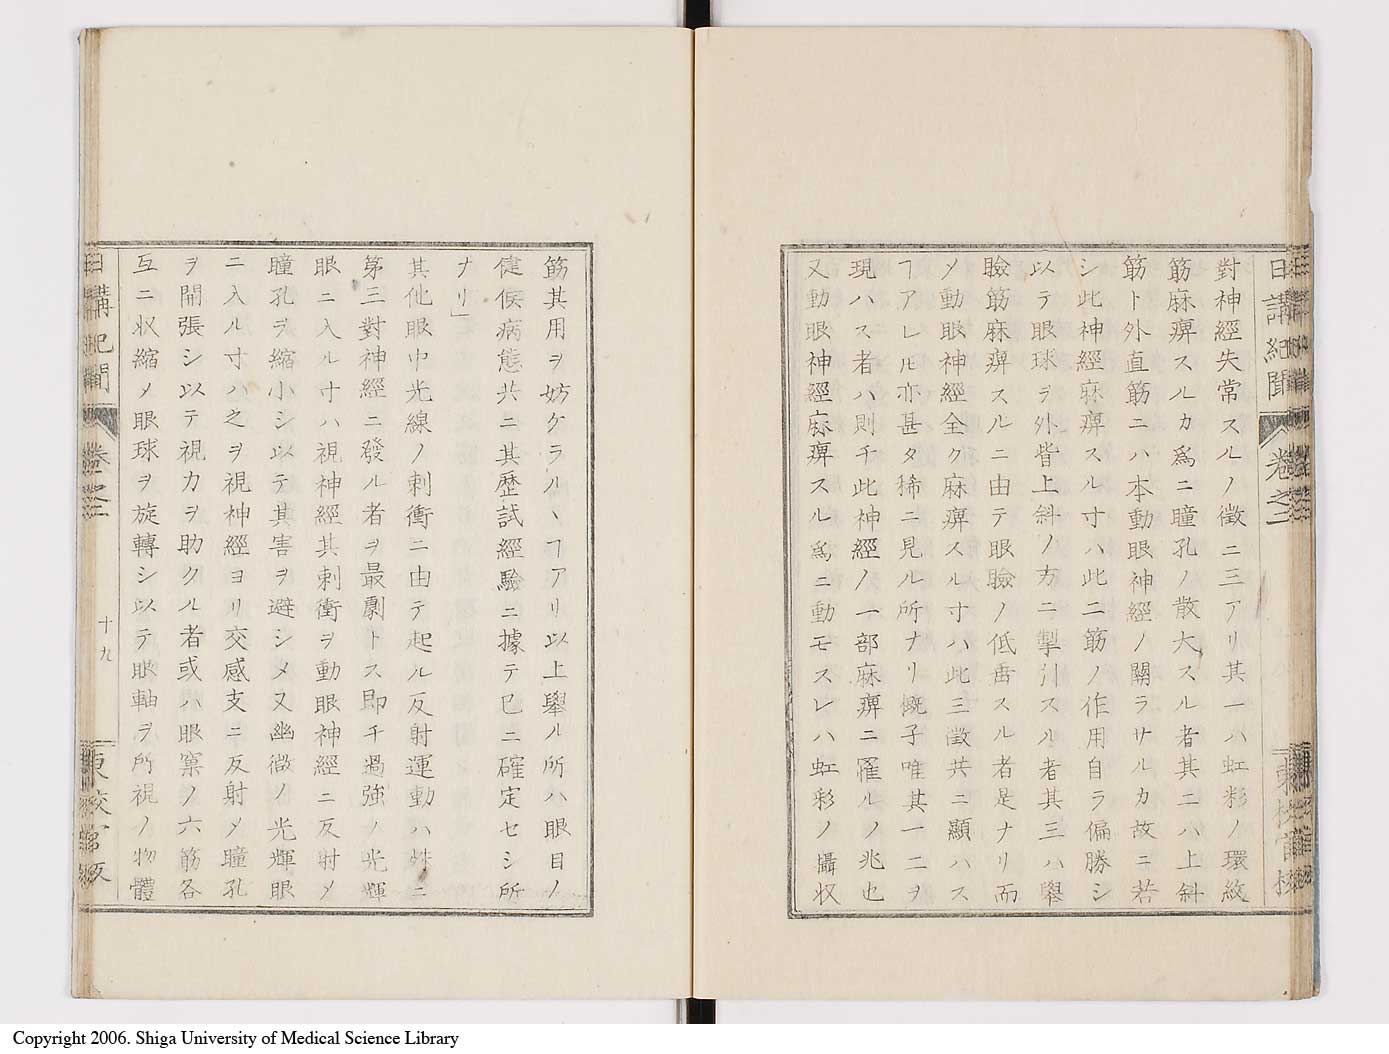 日講紀聞 卷之二
東校官板
對神經失常スルノ徵ニ三アリ其一ハ虹彩ノ環紋
筋麻痺スルカ爲ニ瞳孔ノ散大スル者其二ハ上斜
筋ト外直筋ニハ本動眼神經ノ關ラサルカ故ニ若
シ此神經麻痺スル寸ハ此二筋ノ作用自ラ偏勝シ
以テ眼球ヲ外眥上斜ノ方ニ掣引スル者其三ハ擧
瞼筋麻痺スルニ由テ眼瞼ノ低垂スル者是ナリ而
メ動眼神經全ク麻痺スル寸ハ此三徵共ニ顯ハス
ヿアレ𪜈亦甚タ稀ニ見ル所ナリ慨子唯其一二ヲ
現ハス者ハ則チ此神經ノ一部麻痺ニ罹ルノ兆也
又動眼神經麻痺スル爲ニ動モスレハ虹彩ノ攝収
筋其用ヲ妨ケラルヽヿアリ以上擧ル所ハ眼目ノ
健候病態共ニ其歷試經驗ニ據テ已ニ確定セシ所
ナリ」
其他眼中光線ノ刺衝ニ由テ起ル反射運動ハ殊ニ
第三對神經ニ發ル者ヲ最劇トス即チ過強ノ光輝
眼ニ入ル寸ハ視神經其刺衝ヲ動眼神經ニ反射メ
瞳孔ヲ縮小シ以テ其害ヲ避シメ又幽微ノ光輝眼
ニ入ル寸ハ之ヲ視神經ヨリ交感支ニ反射メ瞳孔
ヲ開張シ以テ視力ヲ助クル者或ハ眼窠ノ六筋各
互ニ収縮メ眼球ヲ旋轉シ以テ眼軸ヲ所視ノ物體
日講紀聞 卷之二 十九 東校官板
Copyright 2006. Shiga University of Medical Science Library